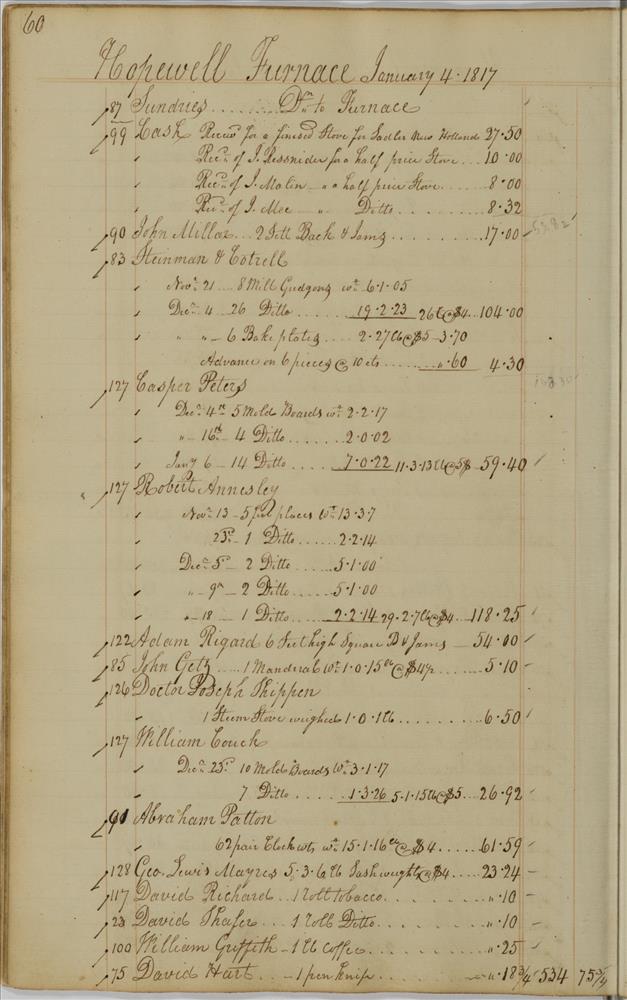 60
Hopewell Furnace January 4 · 1817
87 Sundries ........ Drs to Furnace
99 Cash Recvd for a finised Stove for Sadler New Holland 27·50
Recd of J. Ressnider for a half price Stove ... 10·00
Recd of J. Malin — " a half price Stove ..... 8·00
Recd of J. Mee — " Ditto ......... 8·32
90 John Millar ... 2 Sett Back & Jams ......... 17·00
83 Steinman & Cotrell
Novr 21 — 8 Mill Gudgeons wt 6·1·05
Decr 4 — 26 Ditto ....... 19·2·23 26 lb @ $4 — 104·00
" " — 6 Bake plates .... 2·27 lb @ $5 — 3·70
Advance on 6 pieces @ 10 cts ....... "·60 4·30
127 Casper Peters
Decr 4th — 5 Mold Boards wt 2·2·17
" — 16th — 4 Ditto ....... 2·0·02
Jany 6 — 14 Ditto ...... 7·0·22 11·3·13 lb @ 5$ — 59·40
127 Robert Annesley
Novr 13 — 5 places wt 13·3·7
25 — 1 Ditto ...... 2·2·14
Decr 5 — 2 Ditto ...... 5·1·00
" — 9 — 2 Ditto ...... 5·1·00
" — 18 — 1 Ditto ...... 2·2·14 29·2·7 lb @ $4 ... 118·25
122 Adam Rigard 6 Feet high Square B & Jams — 54·00
85 John Getz .... 1 Manderal wt 1·0·15 lb @ $4½ ....... 5·10
126 Doctor Joseph Shippen
1 Steem Stove weighed 1·0·1 lb ......... 6·50
127 William Couch
Decr 23 10 Mold Boards wt 3·1·17
7 Ditto ....... 1·3·26 5·1·15 lb @ $5 ... 26·92
90 Abraham Patton
62 pair Clock wts wt 15·1·16 lb @ $4 ..... 61·59
128 Geo. Lewis Mayres 5·3·6 lb Sash weights @ $4 .... 23·24
117 David Richard .. 1 roll tobacco ........ "·10
23 David Shafer ... 1 roll Ditto ........ "·10
100 William Griffith — 1 lb Coffee ........ "·25
75 David Hart .. — 1 pen knife ........ "·18¾ 534 75¾